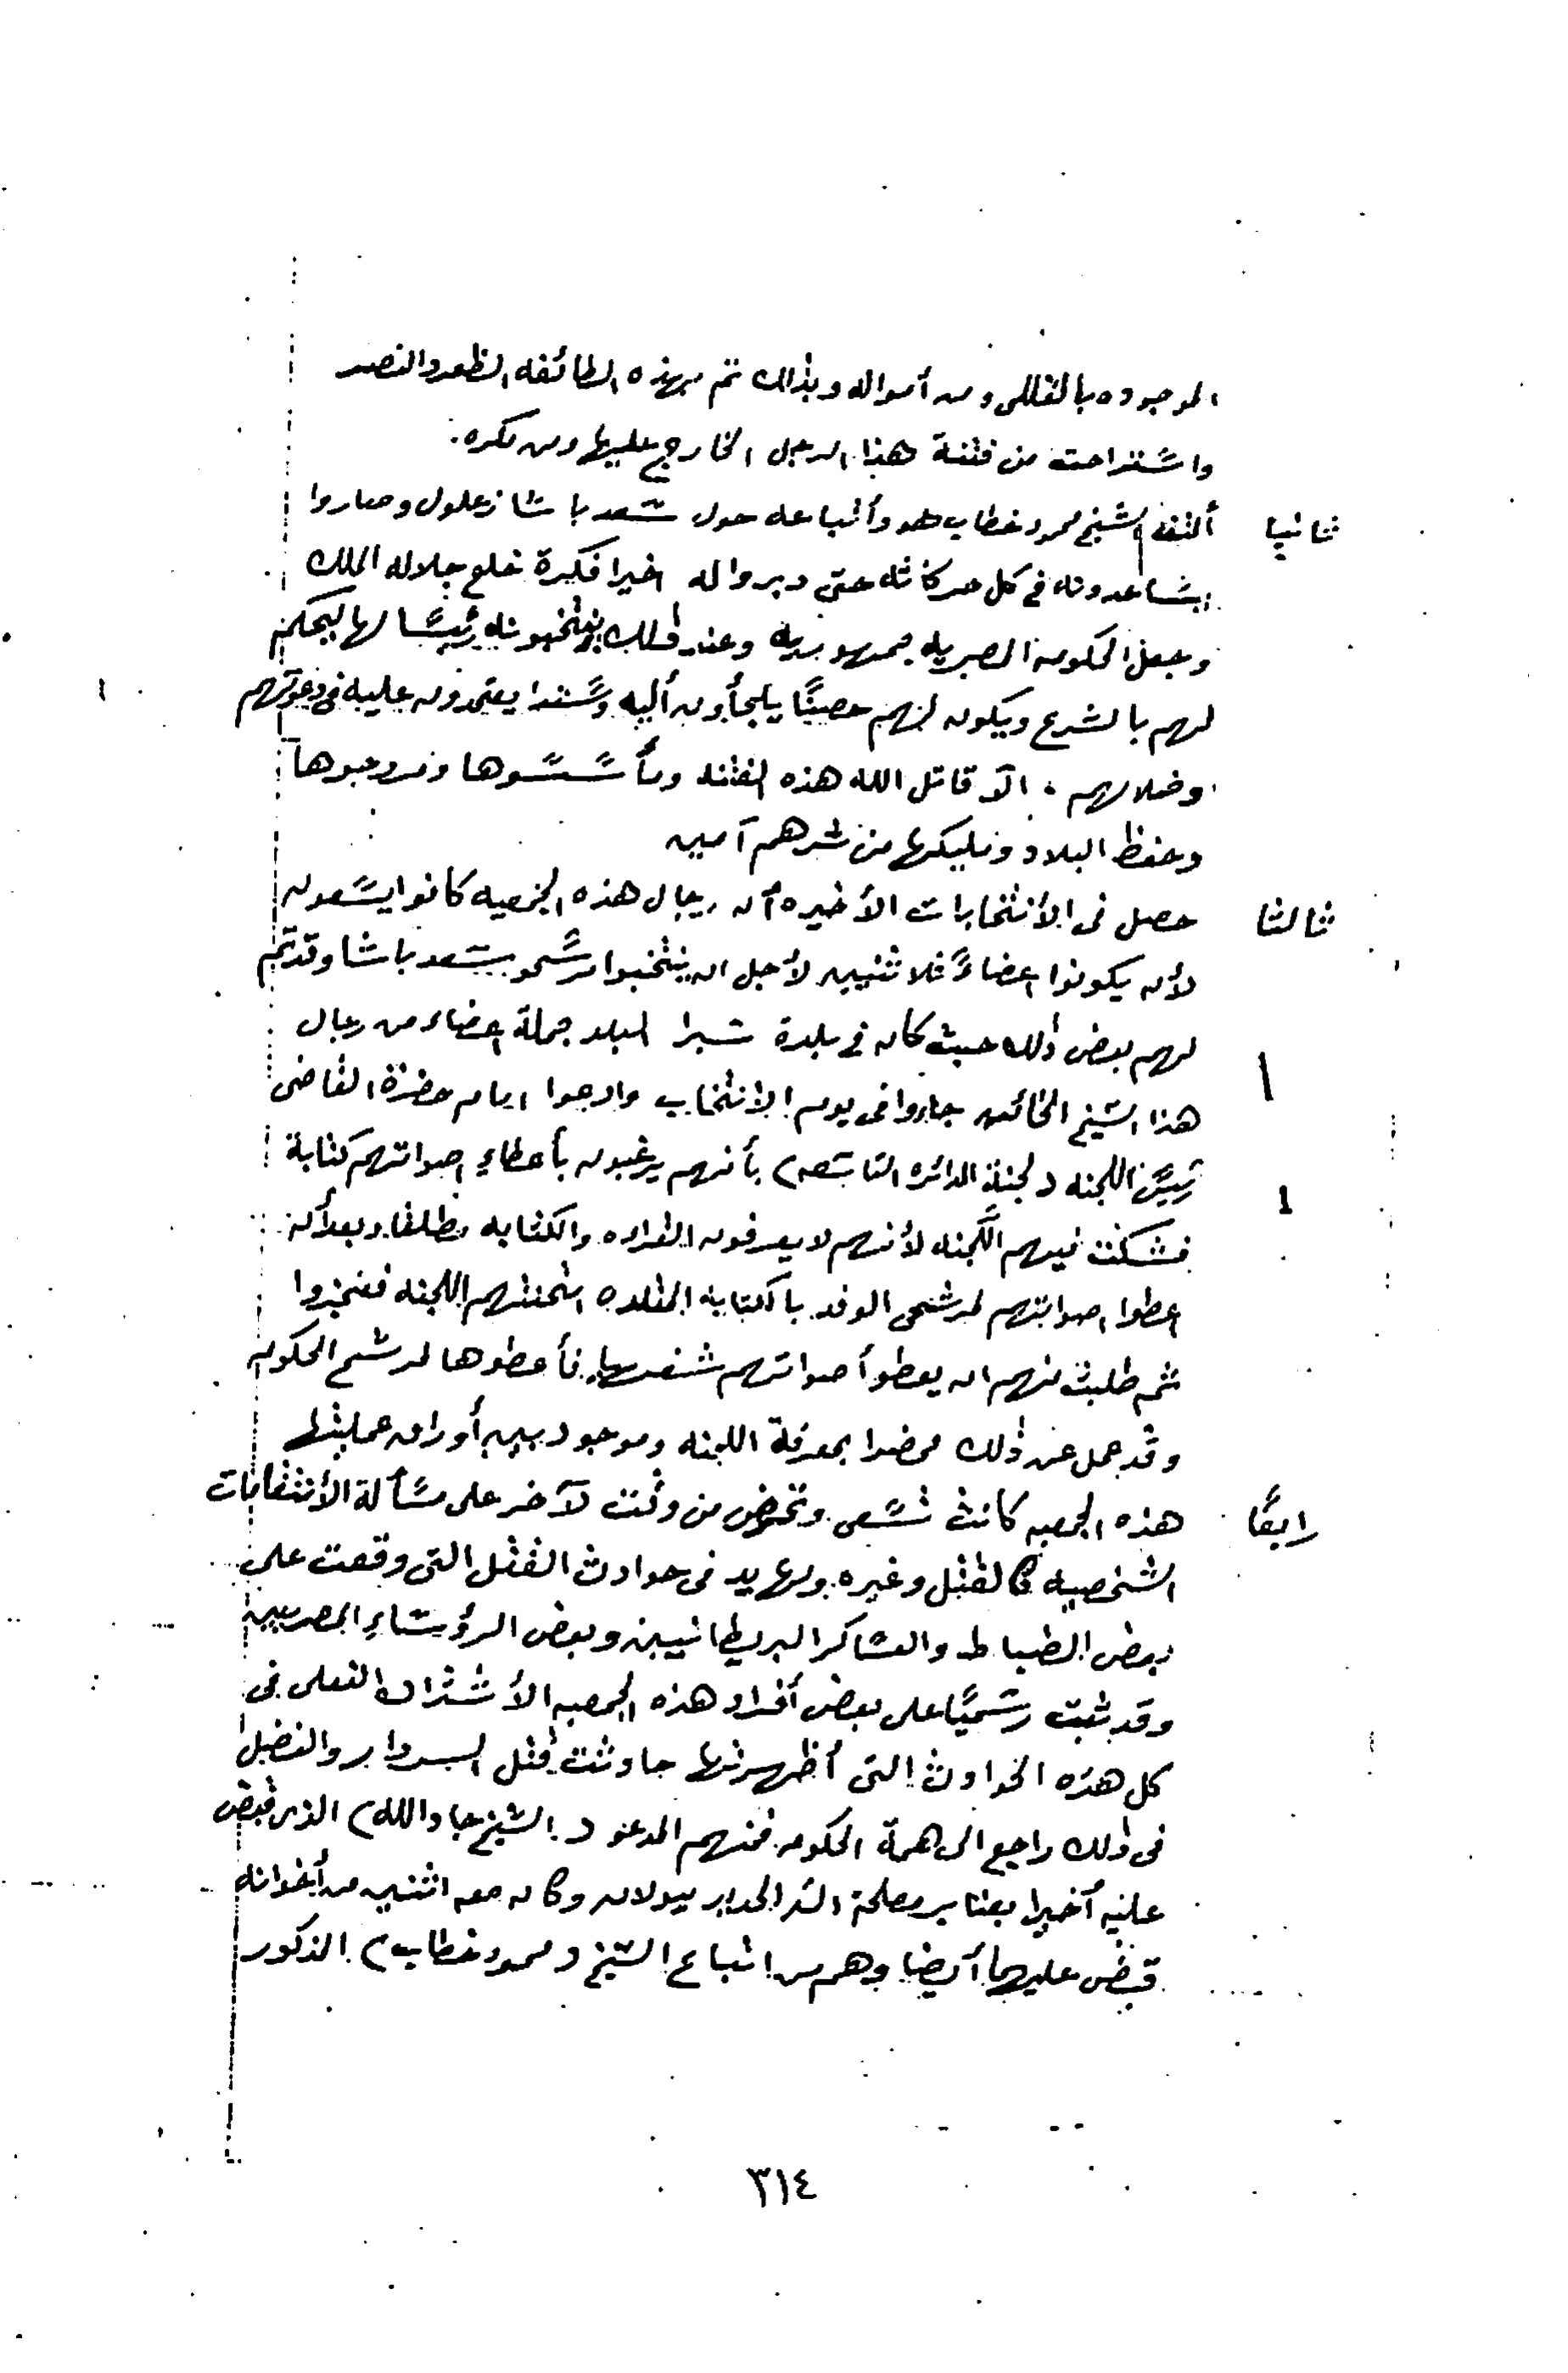 الموجوده بالقللى ومن أمواله وبذلك تم بهذه الطائفه الظفر والنصر
واستراحت من فتنة هذا الرجل الخارج عليها ومن مكره.
ثانيا ألتف الشيخ محمود خطاب هو وأتباعه حول سعد باشا زعلول وصاروا
يساعدونه فى كل حركاته حتى دبروا له اخيرا فكرة خلع جلاله الملك
وجعل الحكومه المصريه جمهوريه وعند ذلك ينتخبونه رئيسا لها ليحكم
لهم بالشرع ويكون لهم حصينًا يلجأون أليه وسندا يعتمدون عليه فى دعوتهم
وضلالهم . الآ قاتل الله هذه الفتنه ومأسسوها ومروجوها
وحفظ البلاد ومليكها من شرهم آمين
ثالثا حصل فى الأنتخابات الأخيره أن رجال هذه الجمعيه كانوا يسعون
لأن يكونوا اعضاءً ثلاثنيين لأجل ان ينتخبوا مرشحو سعد باشا وقد تم
لهم بعض ذلك حيث كان فى بلدة شبرا البلد جملة اعضاء من رجال
هذا الشيخ الخائن جاءوا فى يوم الانتخاب وادعوا امام حضرة القاضى
رئيس اللجنه (لجنة الدائره التاسعه) بأنهم يرغبون بأعطاء اصواتهم كتابة
فشكت فيهم اللجنه لأنهم لا يعرفون القراءه والكتابه مطلقا وبعد أن
اعطوا اصواتهم لمرشحى الوفد بالكتابه المقلده امتحنتهم اللجنه فعجزوا
ثم طلبت منهم ان يعطوا أصواتهم شفهيا فأعطوها لمرشح الحكومه
وقد عمل عن ذلك محضرا بمعرفة اللجنه وموجود بين أوراق عمليتها
رابعًا هذه الجمعيه كانت تسعى وتحرض من وقت لآخر على مسألة الأنتقامات
الشخصيه كالقتل وغيره ولها يد فى حوادث القتل التى وقعت على
بعض الضباط والعساكر البريطانيين وبعض الرؤساء المصريين
وقد ثبت رسميًا على بعض أفراد هذه الجمعيه الأشتراك الفعلى فى
كل هذه الحوادث التى أظهرتها حادثت قتل السردار والفضل
فى ذلك راجع الى همة الحكومه فمنهم المدعو (الشيخ جاد الله) الذى قبض
عليه أخيرا بعنابر مصلحة السكة الحديد ببولاق وكان معه اثنين من أخوانه
قبض عليهما أيضا وهم من اتباع الشيخ (محمود خطاب) المذكور
٣١٤